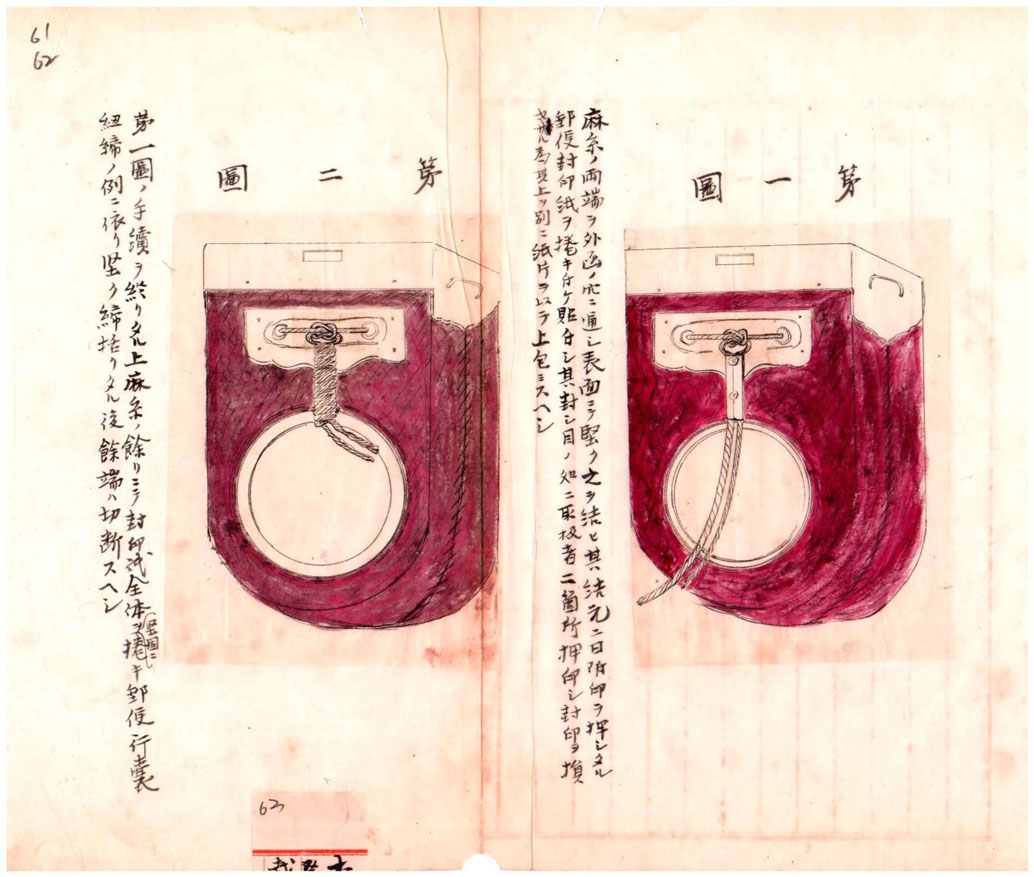 61
62
第一圖
麻糸ノ両端ヲ外函ノ穴ニ通シ表面ニテ堅ク之ヲ結ヒ其結元ニ日附印ヲ押シタル
郵便封印紙ヲ捲キ付ケ貼付シ其封シ目ノ処ニ取扱者二箇所押印シ封印ヲ損
セサル為其上ヲ別ニ紙片ヲ以テ上包ミスヘシ
第二圖
第一圖ノ手續ヲ終リタル上麻糸ノ餘リニテ封印紙全体ヲ捲キ郵便行嚢
紐締ノ例ニ依リ堅ク締括リタル後餘端ハ切断スヘシ
63